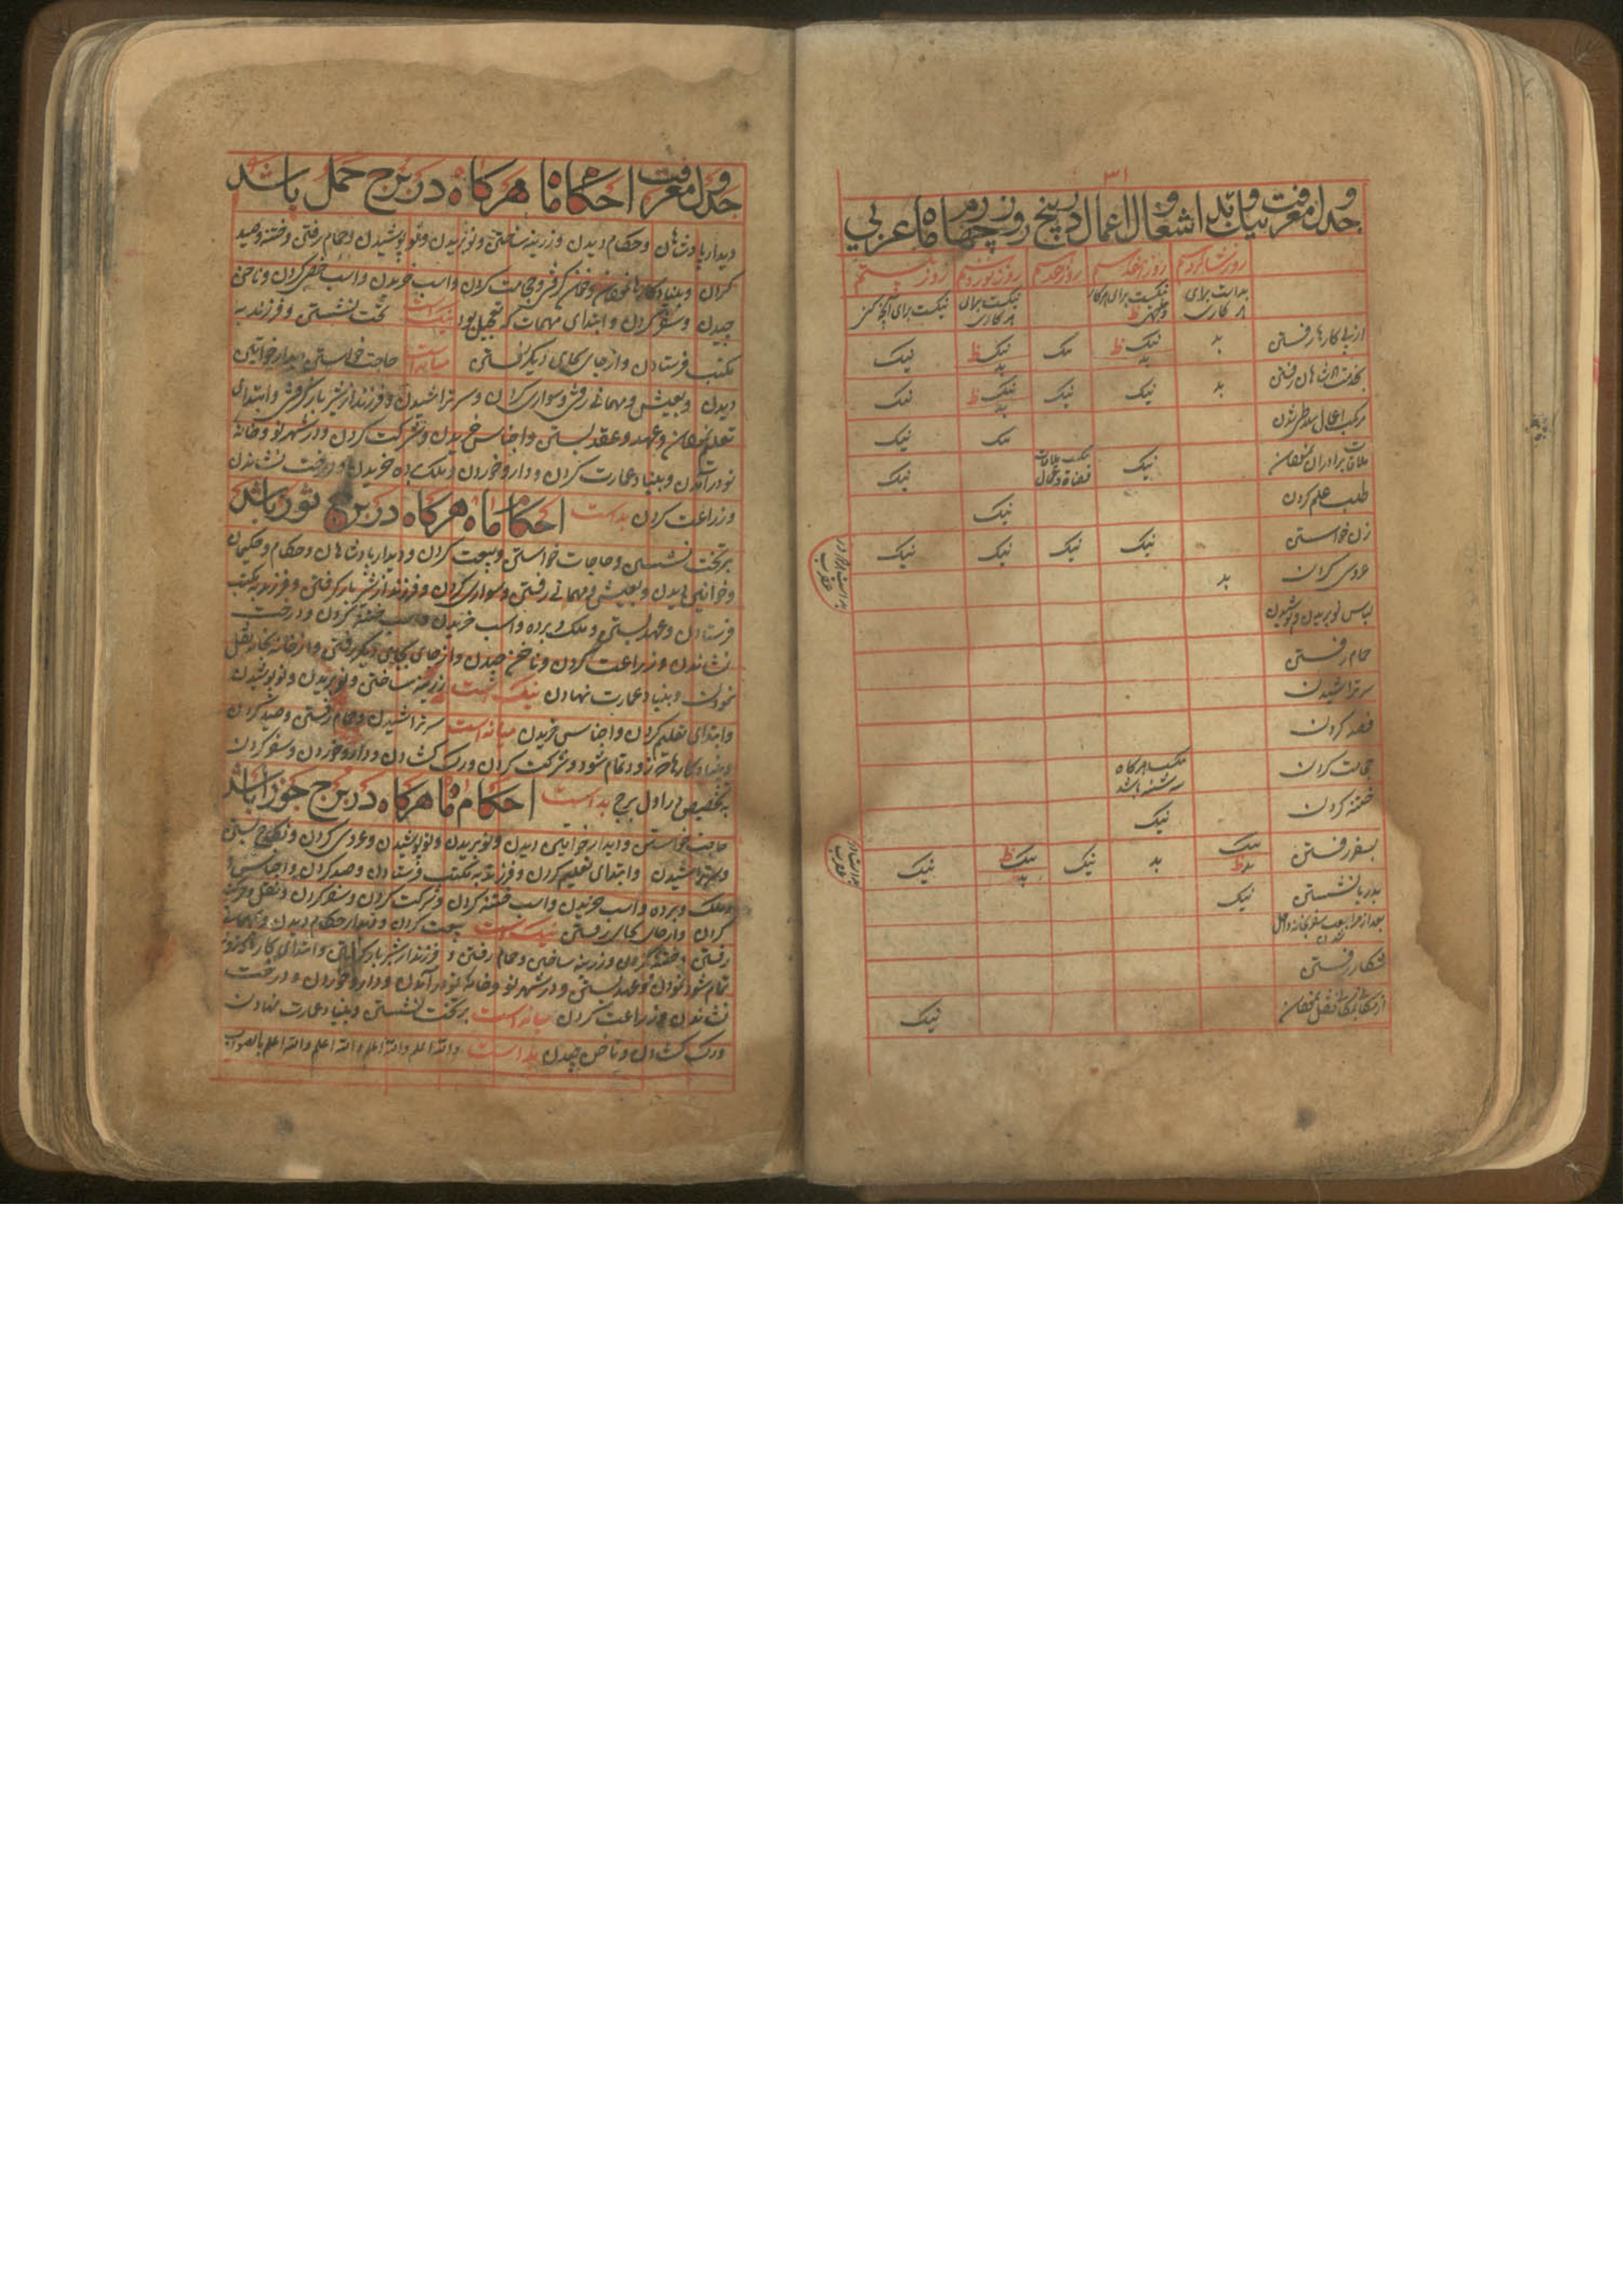 ۳۱
جدول معرفت نیک و بد اشغال و اعمال در پنج روز چهارم ماه عربی
روز شانزدهم روز هفدهم روز هجدهم روز نوزدهم روز بیستم
بد است برای هر کاری نیکست برای هر کار نیکست برای هر کاری نیکست برای
از پی کارها رفتن بد نیک ظ بد نیک نیک ظ بد نیک
بخدمت پادشاهان رفتن بد نیک نیک نیک ظ بد نیک
مرکب اعمال سلاطین شدن نیک نیک
ملاقات برادران نمودن نیک نیکست ملاقات قضاة و عمال نیک
طلب علم کردن نیک
زن خواستن نیک نیک نیک نیک
بد است اگر در عقرب
عروسی کردن بد
لباس نو بریدن و پوشیدن
حمام رفتن
سر تراشیدن
فصد کردن
حجامت کردن نیکست هرگاه سه شنبه باشد
ختنه کردن نیک
بسفر رفتن نیک بد ظ بد نیک نیک ظ بد نیک
بدریا نشستن نیک
بعد از مراجعت سفر بخانه داخل شدن
شکار رفتن
از مکان بمکان نقل نمودن نیک
جدول معرفت احکام ماه هرگاه در برج حمل باشد
دیدار پادشاهان و حکام دیدن و زرینه ساختن و نو بریدن و نو پوشیدن و حمام رفتن و ختنه و صید
کردن و بنیاد کارها نمودن و حجامت کردن و اسب خریدن و اسب خصی کردن و ناخن
چیدن و سفر کردن و ابتدای مهمات که تعجیل بود نیک است تخت نشستن و فرزند به
مکتب فرستادن و از جای بجای دیگر رفتن میانه است حاجت خواستن و دیدار خواتین
دیدن و بعیش و مهمانی رفتن و سواری کردن و سر تراشیدن و فرزند از شیر باز گرفتن و ابتدای
تعلیم نمودن و عهد و عقد بستن و اجناس خریدن و شرکت کردن و در شهر نو و خانهٔ
نو در آمدن و بنیاد عمارت کردن و دارو خوردن و ملک و برده خریدن و درخت نشاندن
و زراعت کردن بد است احکام ماه هرگاه در برج ثور باشد
بر تخت نشستن و حاجات خواستن و بیعت کردن و دیدار پادشاهان و حکام و حکیمان
و خواتین دیدن و بعیش و مهمانی رفتن و سواری کردن و فرزند از شیر باز گرفتن و فرزند به مکتب
فرستادن و عهد بستن و ملک و برده و اسب خریدن و اسب خفته کردن و درخت
نشاندن و زراعت کردن و ناخن چیدن و از جای بجای دیگر رفتن و از خانه بخانه نقل
نمودن و بنیاد عمارت نهادن نیک است زرینه ساختن و نو بریدن و نو پوشیدن
و ابتدای تعلیم کردن و اجناس خریدن میانه است سر تراشیدن و حمام رفتن و صید کردن
و بنیاد کارها که زود تمام شود و شرکت کردن و رگ گشادن و دارو خوردن و سفر کردن
به تخصیص در اول برج بد است احکام ماه هرگاه در برج جوزا باشد
حاجت خواستن و دیدار خواتین دیدن و نو بریدن و نو پوشیدن و عروسی کردن و نکاح بستن
و سر تراشیدن و ابتدای تعلیم کردن و فرزند به مکتب فرستادن و صید کردن و اجناس
و ملک و برده و اسب خریدن و اسب خفته کردن و شرکت کردن و سفر کردن و نقل و حرکت
کردن و از جای بجای رفتن نیک است بیعت کردن و دیدار حکام دیدن و بمهمانی
رفتن و ختنه کردن و زرینه ساختن و حمام رفتن و فرزند از شیر باز گرفتن و ابتدای کارها که زود
تمام شود نمودن و عهد بستن و در شهر نو و خانهٔ نو در آمدن و دارو خوردن و درخت
نشاندن و زراعت کردن میانه است بر تخت نشستن و بنیاد عمارت نهادن
و رگ گشادن و ناخن چیدن بد است والله اعلم والله اعلم والله اعلم والله اعلم بالصواب